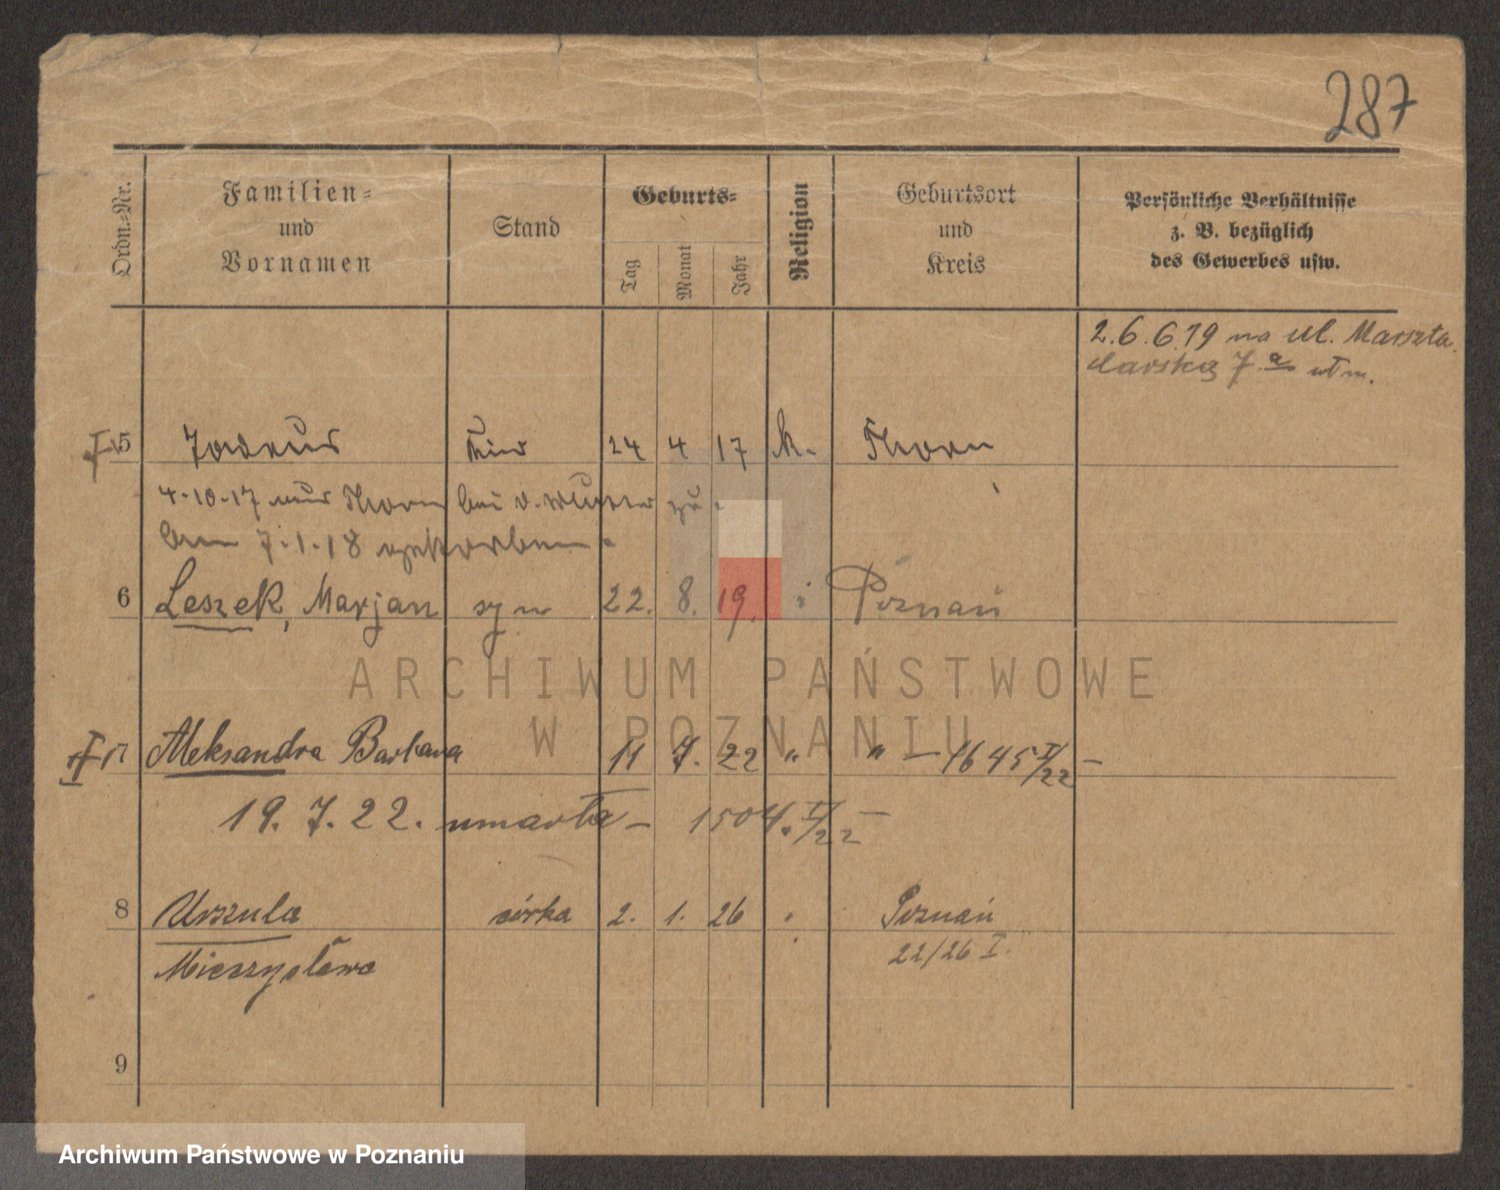 287
Ordn.-Nr.
Familien-
und
Vornamen
Stand
Geburts-
Tag
Monat
Jahr
Religion
Geburtsort
und
Kreis
Persönliche Verhältnisse
z. B. bezüglich
des Gewerbes usw.
2.6.6.19 na ul. Marszta-
larską 7a
5 Tadeus Kind 24 4 17 k. Thorn
4.10.17 aus Thorn bei zu.
am 7.1.18 gestorben.
6 Leszek, Marjan syn 22. 8. 19. Poznań
ARCHIWUM PAŃSTWOWE
W POZNANIU
7 Aleksandra Barbara 11 7. 22 " " – 1645 I/22 –
19. 7. 22. umarła – 1504. II/22 –
8 Urszula córka 2. 1. 26 Poznań
Mieczysława 22/26 I.
9
Archiwum Państwowe w Poznaniu